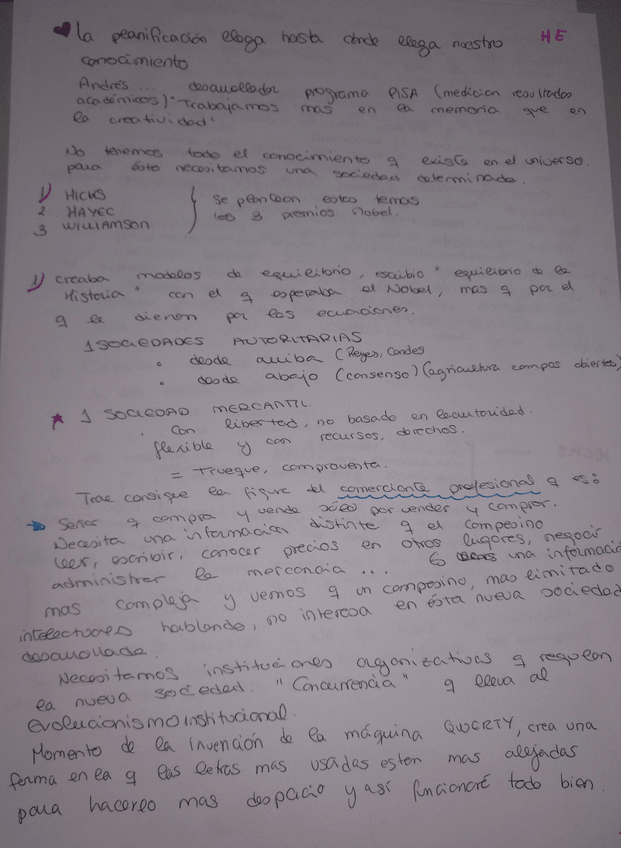 La planificación llega hasta donde llega nuestro HE
conocimiento
Andrés ... desarrollador programa PISA (medicion resultados
académicos) "Trabajamos mas en la memoria que en
la creatividad"
No tenemos todo el conocimiento q existe en el universo.
para ésto necesitamos una sociedad determinada.
1) HICKS
2 HAYEC
3 WILLIAMSON
se plantean estos temas
los 3 premios nobel.
1) creaba modelos de equilibrio, escribio "equilibrio de la
Historia" con el q esperaba el Nobel, mas q por el
q le dieron por las ecuaciones.
1 SOCIEDADES AUTORITARIAS
• desde arriba (Reyes, Condes
• desde abajo (consenso) (agricultura campos abiertos)
1 SOCIEDAD MERCANTIL
• Con libertad, no basado en la autoridad.
flexible y con recursos, derechos.
= Trueque, compraventa.
Trae consigo la figura del comerciante profesional q es:
Señor q compra y vende sólo por vender y comprar.
Necesita una información distinta q el campesino
leer, escribir, conocer precios en otros lugares, negociar
administrar la mercancia ... una informació
mas compleja y vemos q un campesino, mas limitado
intelectual hablando, no interesa en ésta nueva sociedad
desarrollada.
Necesitamos instituciones organizativas q regulen
la nueva sociedad. "Concurrencia" q lleva al
evolucionismo institucional.
Momento de la invención de la máquina QWERTY, crea una
forma en la q las letras mas usadas esten mas alejadas
para hacerlo mas despacio y así funcionaré todo bien.